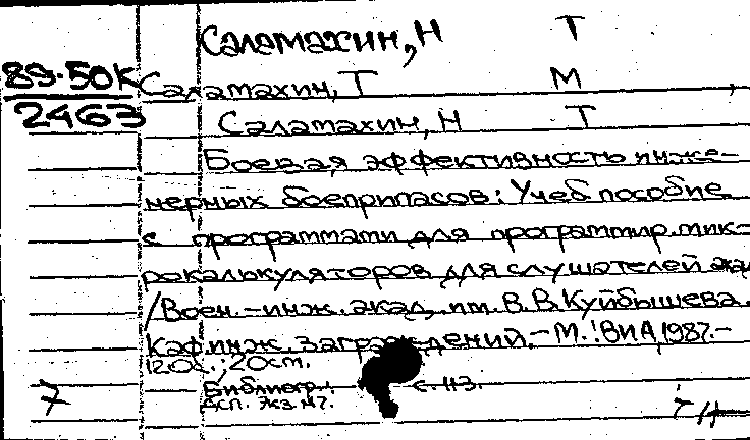 Саламахин, Н Т
89-50К Саламахин, Т М
2463 Саламахин, Н Т
Боевая эффективность инже-
нерных боеприпасов: Учеб пособие
с программами для программир. мик-
рокалькуляторов для слушателей акад
/Воен.-инж. акад. им. В.В. Куйбышева.
Каф. инж. заграждений.-М.: ВИА, 1987.-
20см.
Библиогр.: с. 113.
экз. №7.
7